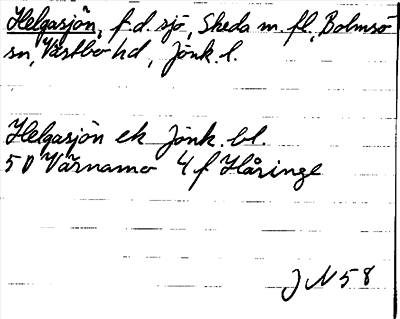 Helgasjön, f.d. sjö, Skeda m.fl., Bolmsö
sn, Västbo hd, Jönk. l.
Helgasjön ek Jönk. bl.
5 D Värnamo 4 f Håringe
J N 58